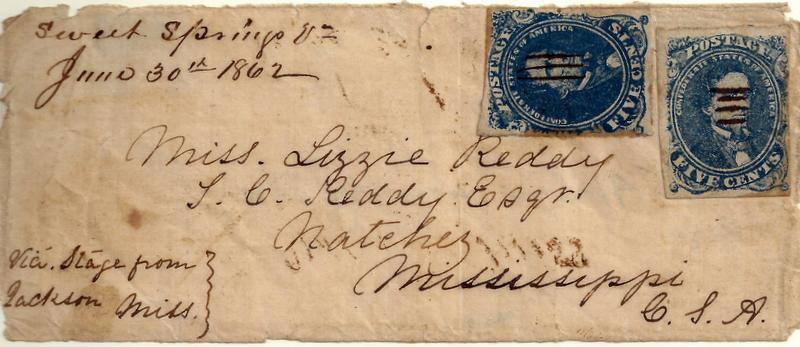 Sweet Springs Va
June 30th 1862
POSTAGE
CONFEDERATE STATES OF AMERICA
FIVE CENTS
POSTAGE
CONFEDERATE STATES OF AMERICA
FIVE CENTS
Miss. Lizzie Reddy
S. C. Reddy Esqr.
Natchez
Mississippi
C. S. A.
Via. Stage from
Jackson Miss.